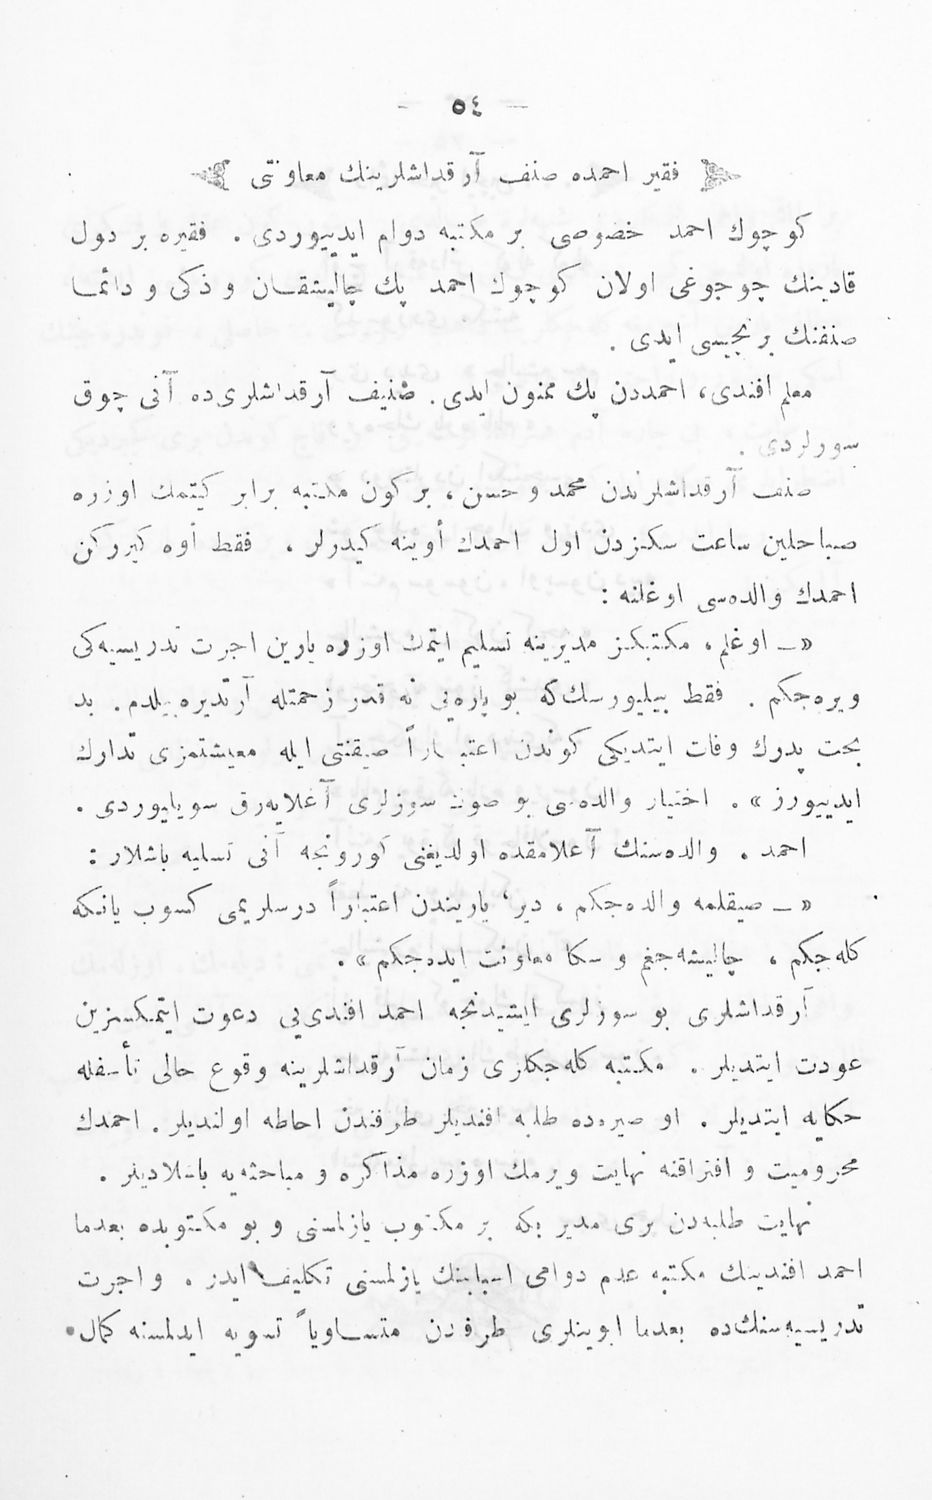 — ٥٤ —
فقیر احمده صنف آرقداشلرینك معاونتی
کوچوك احمد خصوصی بر مکتبه دوام ایدییوردی . فقیره بر دول
قادینك چوجوغی اولان کوچوك احمد پك چالیشقان و ذکی و دائما
صنفنك برنجیسی ایدی .
معلم افندی، احمددن پك ممنون ایدی . صنف آرقداشلری‌ده آنی چوق
سورلردی .
صنف آرقداشلرندن محمد و حسن ، بر کون مکتبه برابر کیتمك اوزره
صباحلین ساعت سکزدن اول احمدك أوینه کیدرلر . فقط أوه کیررکن
احمدك والده‌سی اوغلنه :
«ــ اوغلم ، مکتبکز مدیرینه تسلیم ایتمك اوزره یارین اجرت تدریسیه‌کی
ویره‌جکم . فقط بیلیورسك‌که بو پاره‌یی نه قدر زحمتله آرتدیره‌بیلدم . بد
بخت پدرك وفات ایتدیکی کوندن اعتباراً صیقنتی ایله معیشتمزی تدارك
ایدییورز » . اختیار والده‌سی بو صوك سوزلری آغلایه‌رق سویلیوردی .
احمد . والده‌سنك آغلامقده اولدیغنی کورونجه آنی تسلیه باشلار :
«ــ صیقلمه والده‌جکم ، دیر، یاریندن اعتباراً درسلریمی کسوب یانکه
کله‌جکم ، چالیشه‌جغم و سکا معاونت ایده‌جکم » .
آرقداشلری بو سوزلری ایشیدنجه احمد افندی‌یی دعوت ایتمکسزین
عودت ایتدیلر . مکتبه کله‌جکلری زمان آرقداشلرینه وقوع حالی تأسفله
حکایه ایتدیلر . او صیره‌ده طلبه افندیلر طرفندن احاطه اولندیلر . احمدك
محرومیت و افتراقنه نهایت ویرمك اوزره مذاکره و مباحثه‌یه باشلادیلر .
نهایت طلبه‌دن بری مدیر بکه بر مکتوب یازلمسنی و بو مکتوبده بعدما
احمد افندینك مکتبه عدم دوامی اسبابنك یازلمسنی تکلیف ایدر . و اجرت
تدریسیه‌سنك‌ده بعدما ابوینلری طرفدن متساویاً تسویه ایدلمسنه کمال